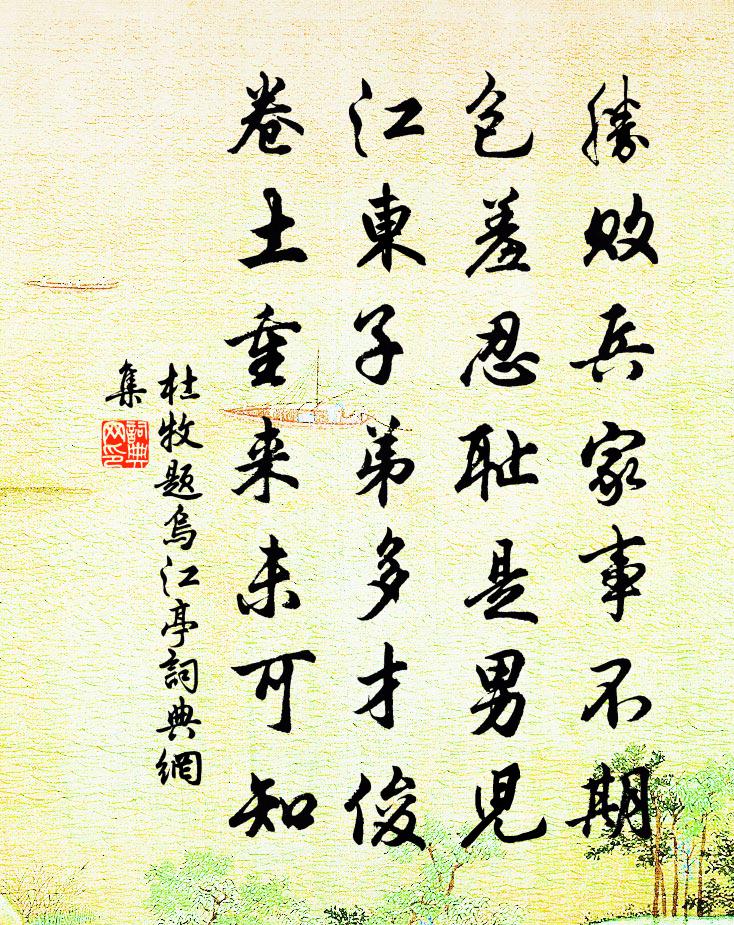 勝敗兵家事不期
包羞忍耻是男児
江東子弟多才俊
卷土重来未可知
杜牧題烏江亭詞典網
集
詞典
网印